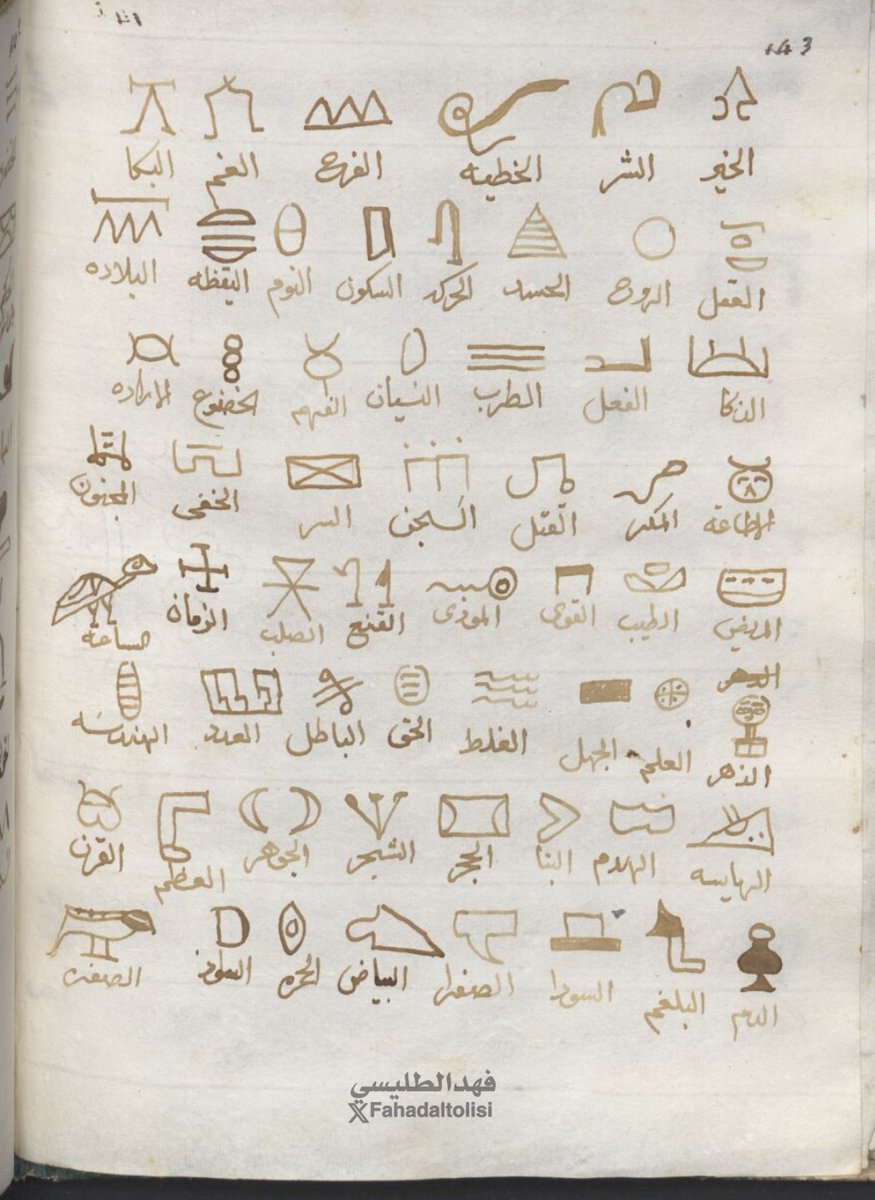 143
الخير الشر الخطيه الفرح الغم البكا
العقل الروح الحسد الحركه السكون النوم اليقظه البلاده
الذكا الفعل الطرب النسيان الفهم الخضوع الاراده
الطاعة المكر القتل السجن السر الخفى المجنون
المريض الطيب القوى الموذى القنع الصلب الزمان الساعة
الدهر
الدهر العلم الجهل الغلط الحق الباطل العدد الهندسه
الهدم البنا الحجر الشجر الجوهر العظم القرن
الدم البلغم السودا الصفرا البياض الحمره السواد الصفره
فهدالطليسي
XFahadaltolisi